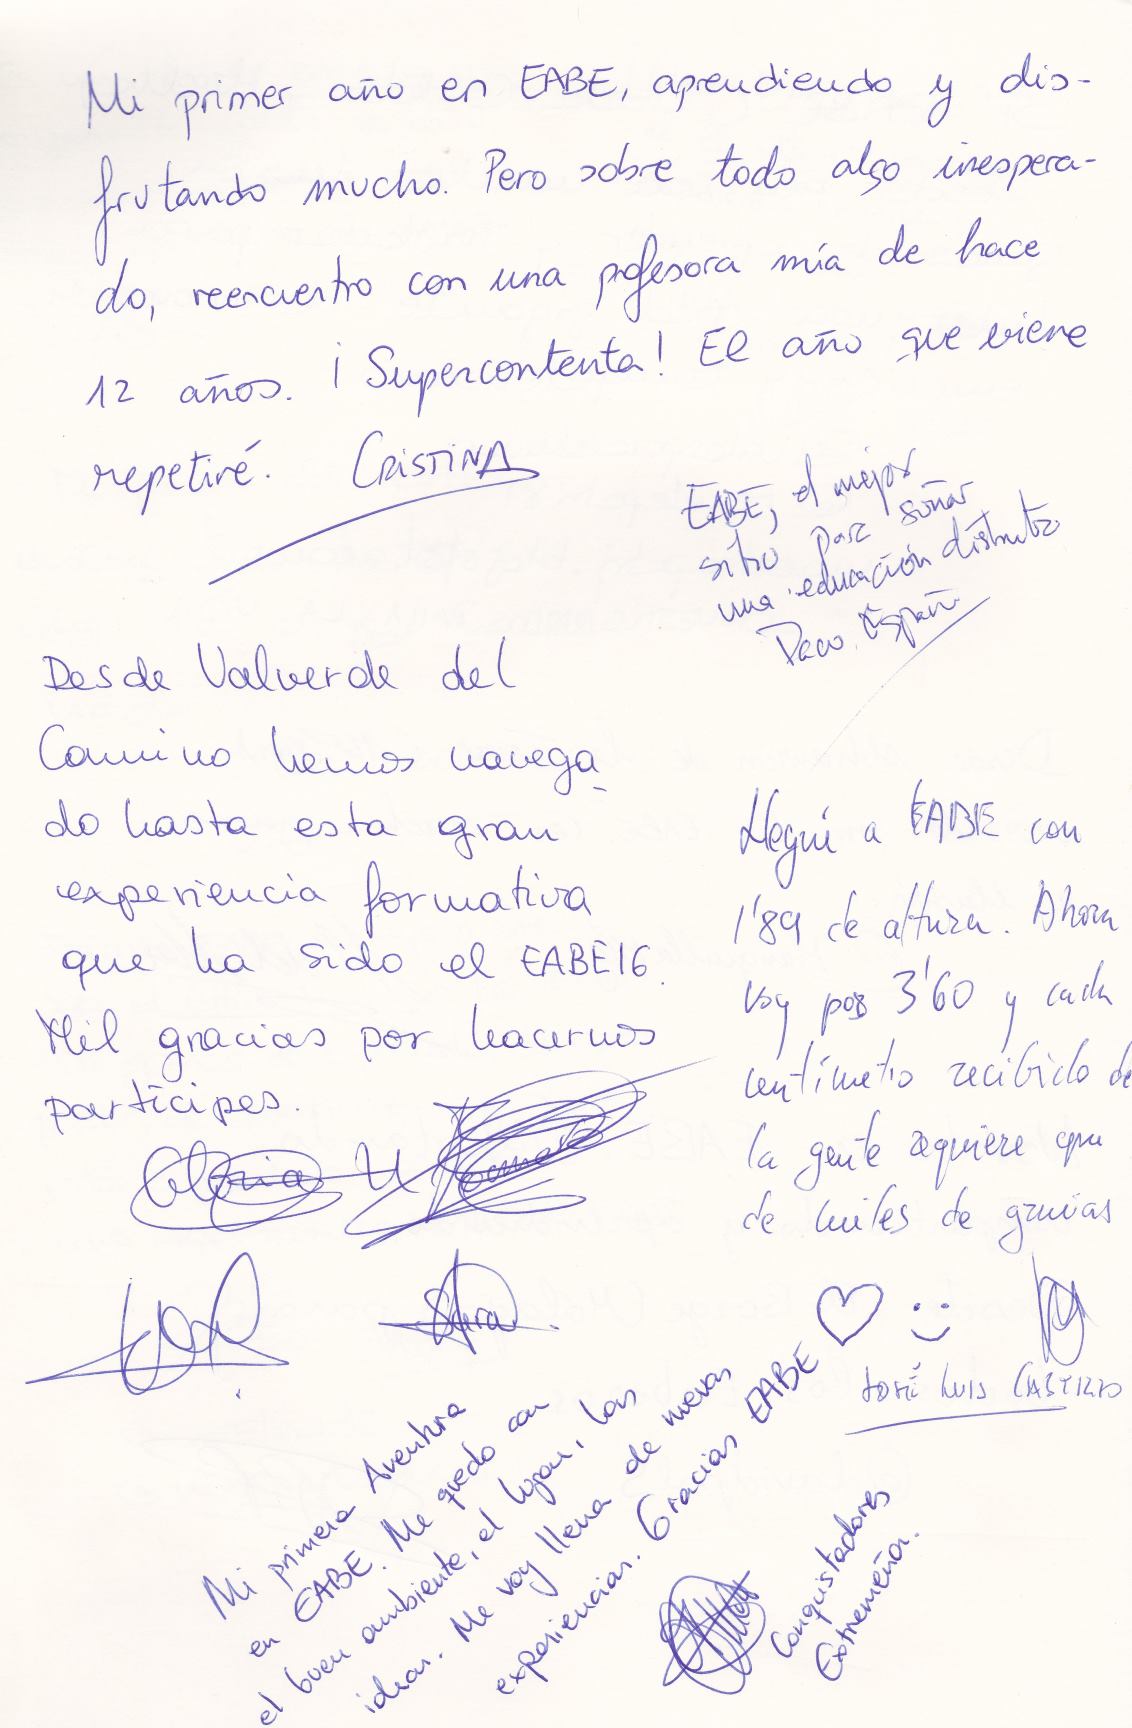 Mi primer año en EABE, aprendiendo y dis-
frutando mucho. Pero sobre todo algo inespera-
do, reencuentro con una profesora mía de hace
12 años. ¡Supercontenta! El año que viene
repetiré. CRISTINA
EABE, el mejor
sitio para soñar
una educación distinta
Paco España
Desde Valverde del
Camino hemos navega
do hasta esta gran
experiencia formativa
que ha sido el EABE16.
Mil gracias por hacernos
partícipes.
Gloria M
Llegué a EABE con
1'89 de altura. Ahora
voy por 3'60 y cada
centímetro recibido de
la gente requiere que
de miles de gracias
JOSÉ LUIS CASTILLO
Mi primera Aventura
en EABE. Me quedo con
el buen ambiente, el lugar, las
ideas. Me voy llena de nuevas
experiencias. Gracias EABE
Conquistadores
Extremeños.